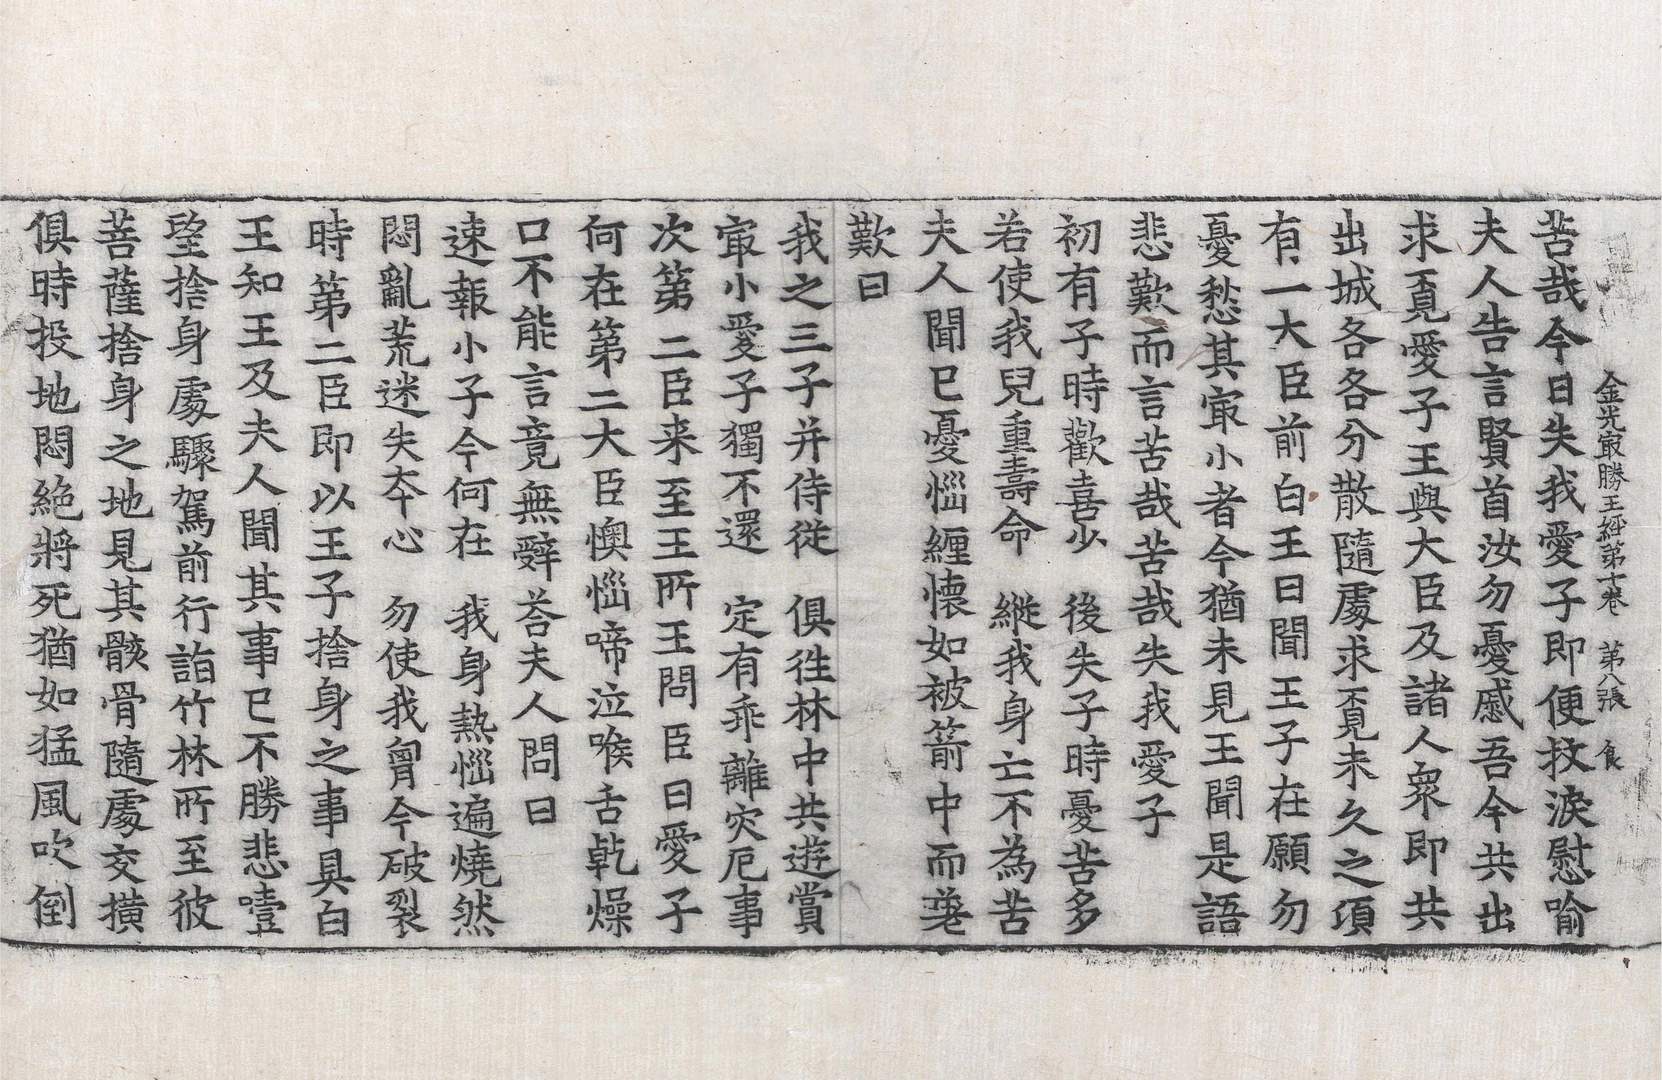 金光㝡勝王經第十卷　第八張　食
苦哉今日失我愛子即便抆淚慰喻
夫人告言賢首汝勿憂慼吾今共出
求覔愛子王與大臣及諸人衆即共
出城各各分散隨處求覔未久之頃
有一大臣前白王曰聞王子在願勿
憂愁其㝡小者今猶未見王聞是語
悲歎而言苦哉苦哉失我愛子
初有子時歡喜少　後失子時憂苦多
若使我兒重壽命　縱我身亡不為苦
夫人聞已憂惱纏懷如被箭中而㘁
歎曰
我之三子并侍從　俱往林中共遊賞
㝡小愛子獨不還　定有乖離灾厄事
次第二臣来至王所王問臣曰愛子
何在第二大臣懊惱啼泣喉舌乾燥
口不能言竟無辝荅夫人問曰
速報小子今何在　我身熱惱遍燒然
悶亂荒迷失夲心　勿使我胷今破裂
時第二臣即以王子捨身之事具白
王知王及夫人聞其事已不勝悲噎
望捨身處驟駕前行詣竹林所至彼
菩薩捨身之地見其骸骨隨處交横
俱時投地悶絶將死猶如猛風吹倒